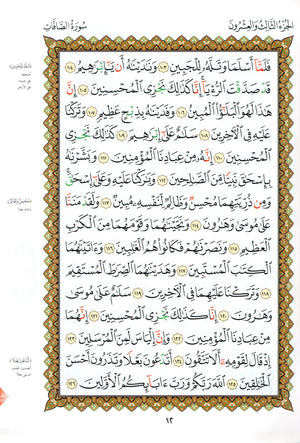 الجزء الثالث والعشرون
سورة الصافات
فَلَمَّا أَسْلَمَا وَتَلَّهُۥ لِلْجَبِينِ ١٠٣ وَنَٰدَيْنَٰهُ أَن يَٰٓإِبْرَٰهِيمُ ١٠٤
قَدْ صَدَّقْتَ ٱلرُّءْيَآ إِنَّا كَذَٰلِكَ نَجْزِى ٱلْمُحْسِنِينَ ١٠٥ إِنَّ
هَٰذَا لَهُوَ ٱلْبَلَٰٓؤُا۟ ٱلْمُبِينُ ١٠٦ وَفَدَيْنَٰهُ بِذِبْحٍ عَظِيمٍ ١٠٧ وَتَرَكْنَا
عَلَيْهِ فِى ٱلْءَاخِرِينَ ١٠٨ سَلَٰمٌ عَلَىٰٓ إِبْرَٰهِيمَ ١٠٩ كَذَٰلِكَ نَجْزِى
ٱلْمُحْسِنِينَ ١١٠ إِنَّهُۥ مِنْ عِبَادِنَا ٱلْمُؤْمِنِينَ ١١١ وَبَشَّرْنَٰهُ
بِإِسْحَٰقَ نَبِيًّا مِّنَ ٱلصَّٰلِحِينَ ١١٢ وَبَٰرَكْنَا عَلَيْهِ وَعَلَىٰٓ إِسْحَٰقَ
وَمِن ذُرِّيَّتِهِمَا مُحْسِنٌ وَظَالِمٌ لِّنَفْسِهِۦ مُبِينٌ ١١٣ وَلَقَدْ مَنَنَّا
عَلَىٰ مُوسَىٰ وَهَٰرُونَ ١١٤ وَنَجَّيْنَٰهُمَا وَقَوْمَهُمَا مِنَ ٱلْكَرْبِ
ٱلْعَظِيمِ ١١٥ وَنَصَرْنَٰهُمْ فَكَانُوا۟ هُمُ ٱلْغَٰلِبِينَ ١١٦ وَءَاتَيْنَٰهُمَا
ٱلْكِتَٰبَ ٱلْمُسْتَبِينَ ١١٧ وَهَدَيْنَٰهُمَا ٱلصِّرَٰطَ ٱلْمُسْتَقِيمَ
١١٨ وَتَرَكْنَا عَلَيْهِمَا فِى ٱلْءَاخِرِينَ ١١٩ سَلَٰمٌ عَلَىٰ مُوسَىٰ
وَهَٰرُونَ ١٢٠ إِنَّا كَذَٰلِكَ نَجْزِى ٱلْمُحْسِنِينَ ١٢١ إِنَّهُمَا
مِنْ عِبَادِنَا ٱلْمُؤْمِنِينَ ١٢٢ وَإِنَّ إِلْيَاسَ لَمِنَ ٱلْمُرْسَلِينَ ١٢٣
إِذْ قَالَ لِقَوْمِهِۦٓ أَلَا تَتَّقُونَ ١٢٤ أَتَدْعُونَ بَعْلًا وَتَذَرُونَ أَحْسَنَ
ٱلْخَٰلِقِينَ ١٢٥ ٱللَّهَ رَبَّكُمْ وَرَبَّ ءَابَآئِكُمُ ٱلْأَوَّلِينَ ١٢٦
١٢